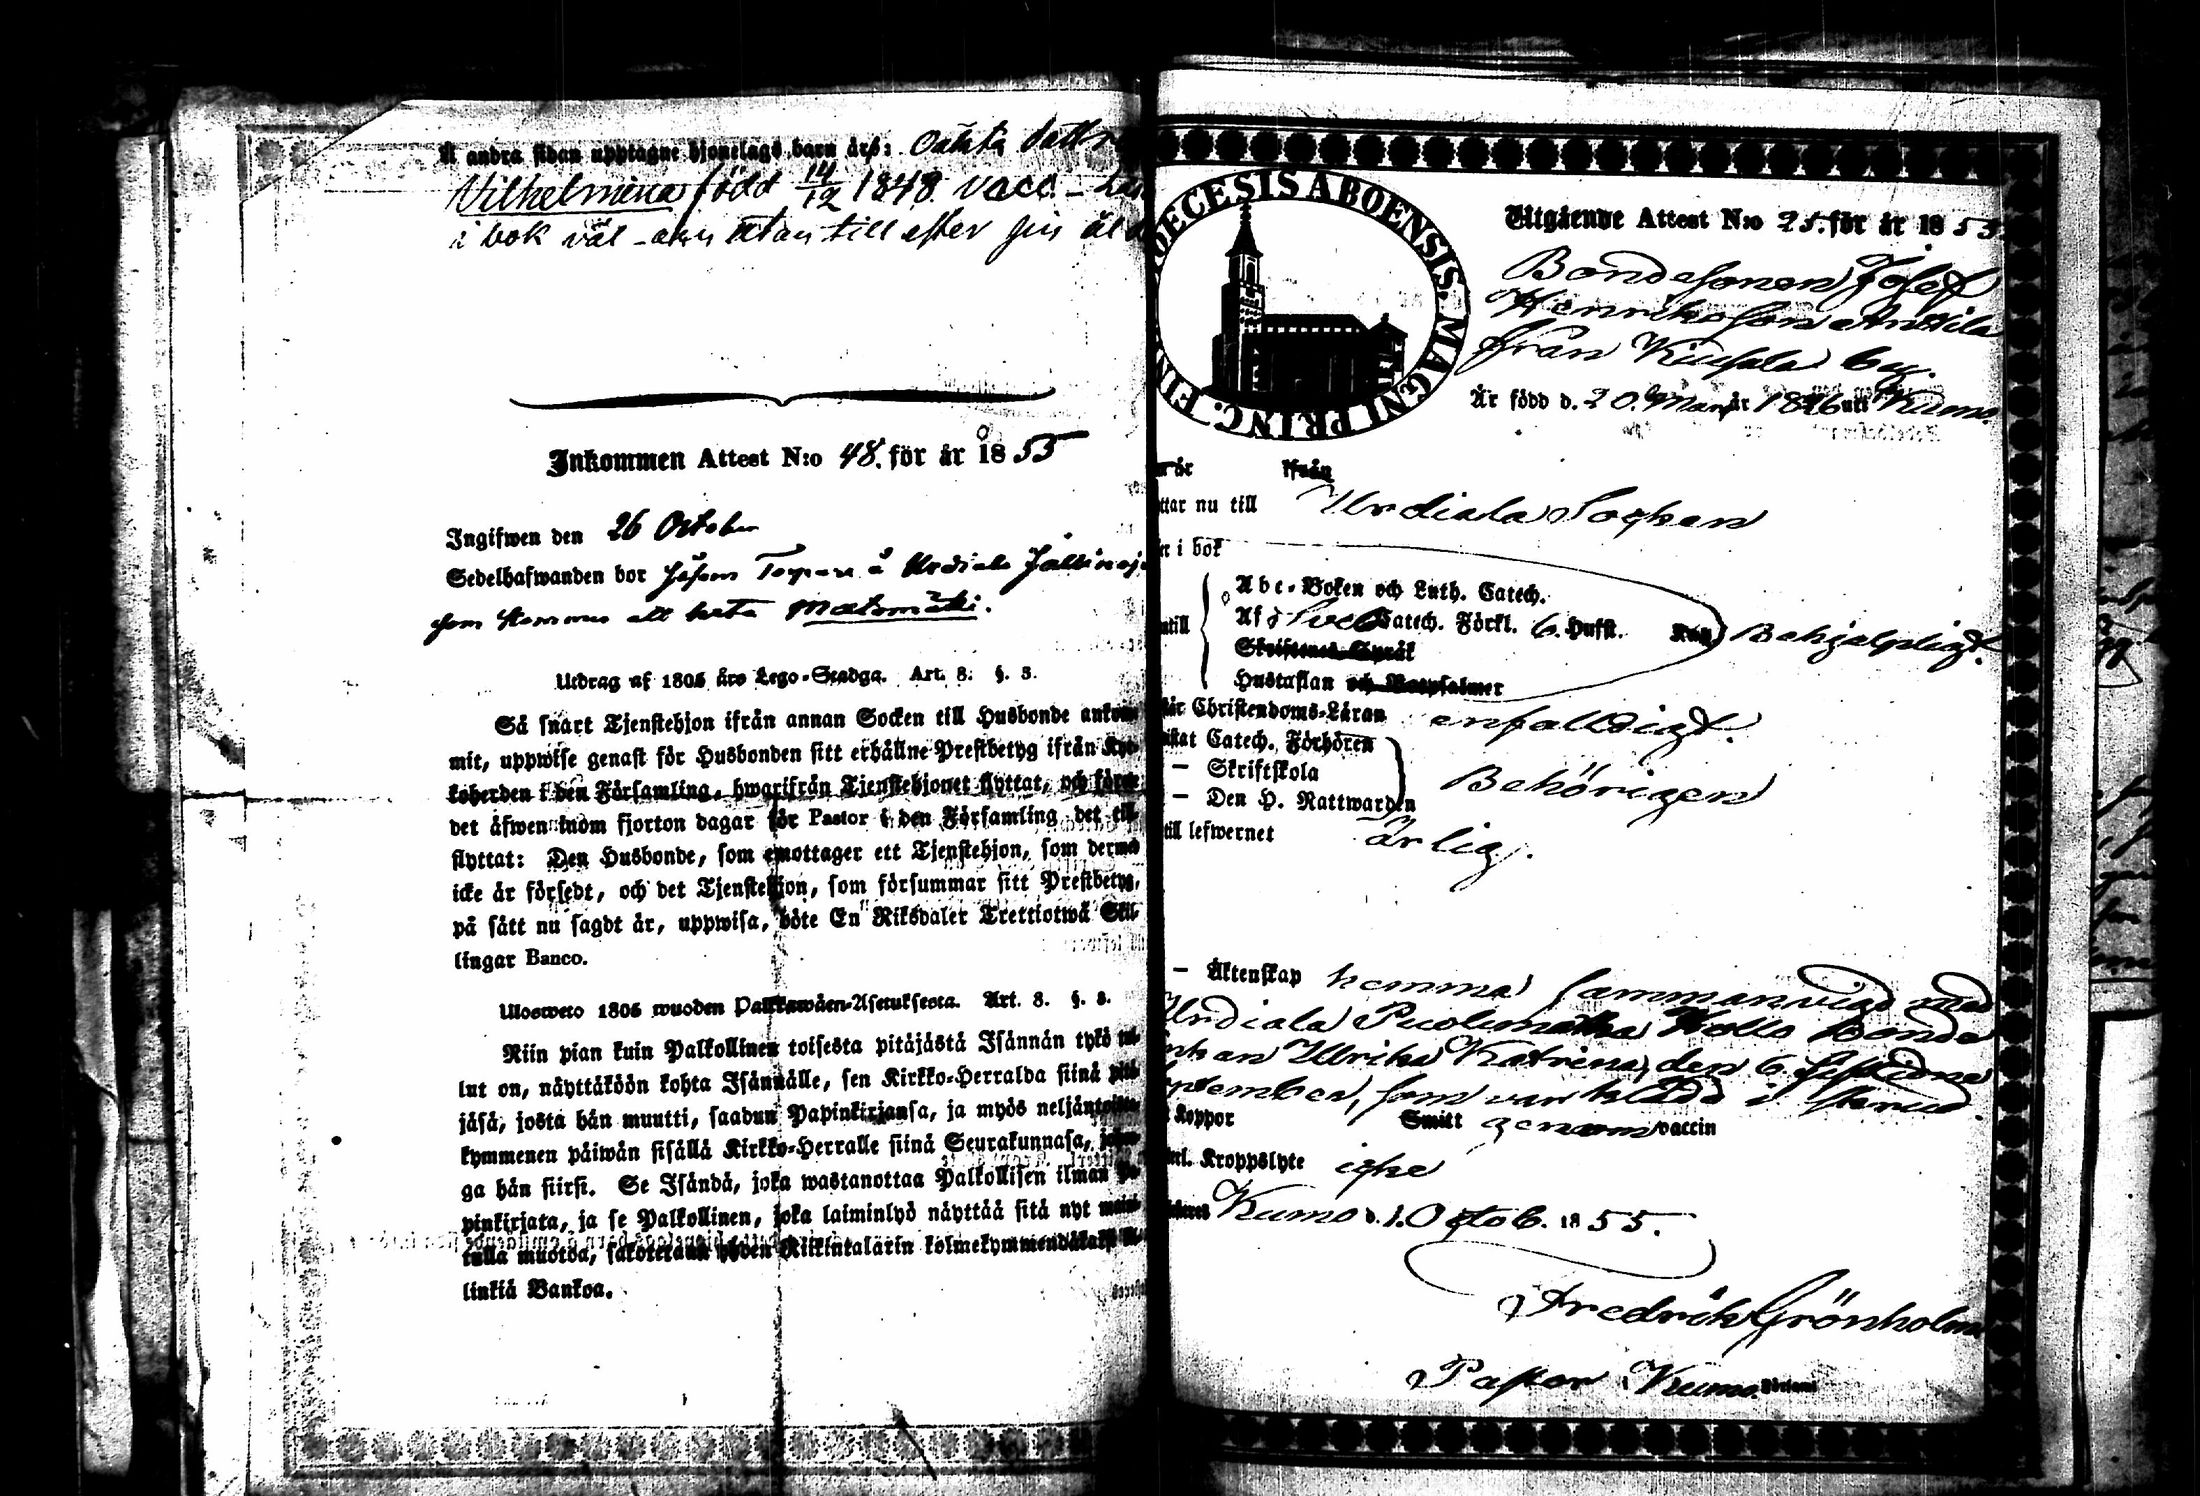 Å andra sidan upptagne hjonelags barn äro: Oäkta dottr
Vilhelmina född 14/12 1848. vacc. – läs
i bok väl – utan till efter sin ål
Inkommen Attest N:o 48. för år 1855
Ingifwen den 26 October
Sedelhafwanden bor såsom Torpare å Urdiala
som kommer att heta Matomäki.
Utdrag af 1805 års Lego-Stadga. Art. 8. §. 3.
Så snart Tjenstehjon ifrån annan Socken till Husbonde ankom-
mit, uppwise genast för Husbonden sitt erhållne Prestbetyg ifrån Kyr-
koherden i den Församling, hwarifrån Tjenstehjonet flyttat, och förete
det äfwen inom fjorton dagar för Pastor i den Församling det till-
flyttat: Den Husbonde, som emottager ett Tjenstehjon, som dermed
icke är försedt, och det Tjenstehjon, som försummar sitt Prestbetyg,
på sätt nu sagdt är, uppwisa, böte En Riksdaler Trettiotwå Skil-
lingar Banco.
Ulosweto 1805 wuoden Palkkawäen-Asetuksesta. Art. 8. §. 3.
Niin pian kuin Palkollinen toisesta pitäjästä Isännän tykö tul-
lut on, näyttäköön kohta Isännälle, sen Kirkko-Herralda siinä pitä-
jäsä, josta hän muutti, saadun Papinkirjansa, ja myös neljäntoista
kymmenen päiwän sisällä Kirkko-Herralle siinä Seurakunnasa, johon-
ga hän siirsi. Se Isändä, joka wastanottaa Palkollisen ilman Pa-
pinkirjata, ja se Palkollinen, joka laiminlyö näyttää sitä nyt maini-
tulla muotoa, sakoitetaan yhden Riikintalarin kolmekymmendäkaksi kil-
linkiä Bankoa.
DIOECESIS ABOENSIS. MAGNI PRINC. FIN
Utgående Attest N:o 25. för år 1855
Bondesonen Josef
Henriksson Anttila
från by.
Är född d. 20. Mars år 1826 uti Kumo.
är ifrån
ttar nu till Urdiala Socken
er i bok
ntill
Abc-Boken och Luth. Catech.
Af Sveb. Catech. Förkl. 6. Hufst. Behjelpligt.
Skriftenes Språk
Hustaflan och Botpsalmer
tår Christendoms-Läran enfalldigt.
istat Catech. Förhören
– Skriftskola Behörigen
– Den H. Nattwarden
till lefwernet ärlig.
– Äktenskap hemma Sammanvigd med
Urdiala Puolimatka Kollo Bonde
enkan Ulrika Katrina, den 6. sistlidne
September, som var klädd i
t Koppor Smitt genom vaccin
erl. Kroppslyte icke
Kumo d. 1. Octob. 1855.
Fredrik Grönholm
Pastor i Kumo.